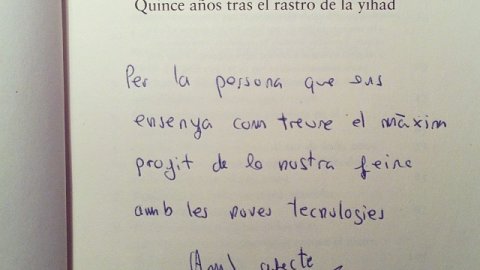 Quince años tras el rastro de la yihad
Per la persona que ens
ensenya com treure el màxim
profit de la nostra feina
amb les noves tecnologies
(Amb) afecte